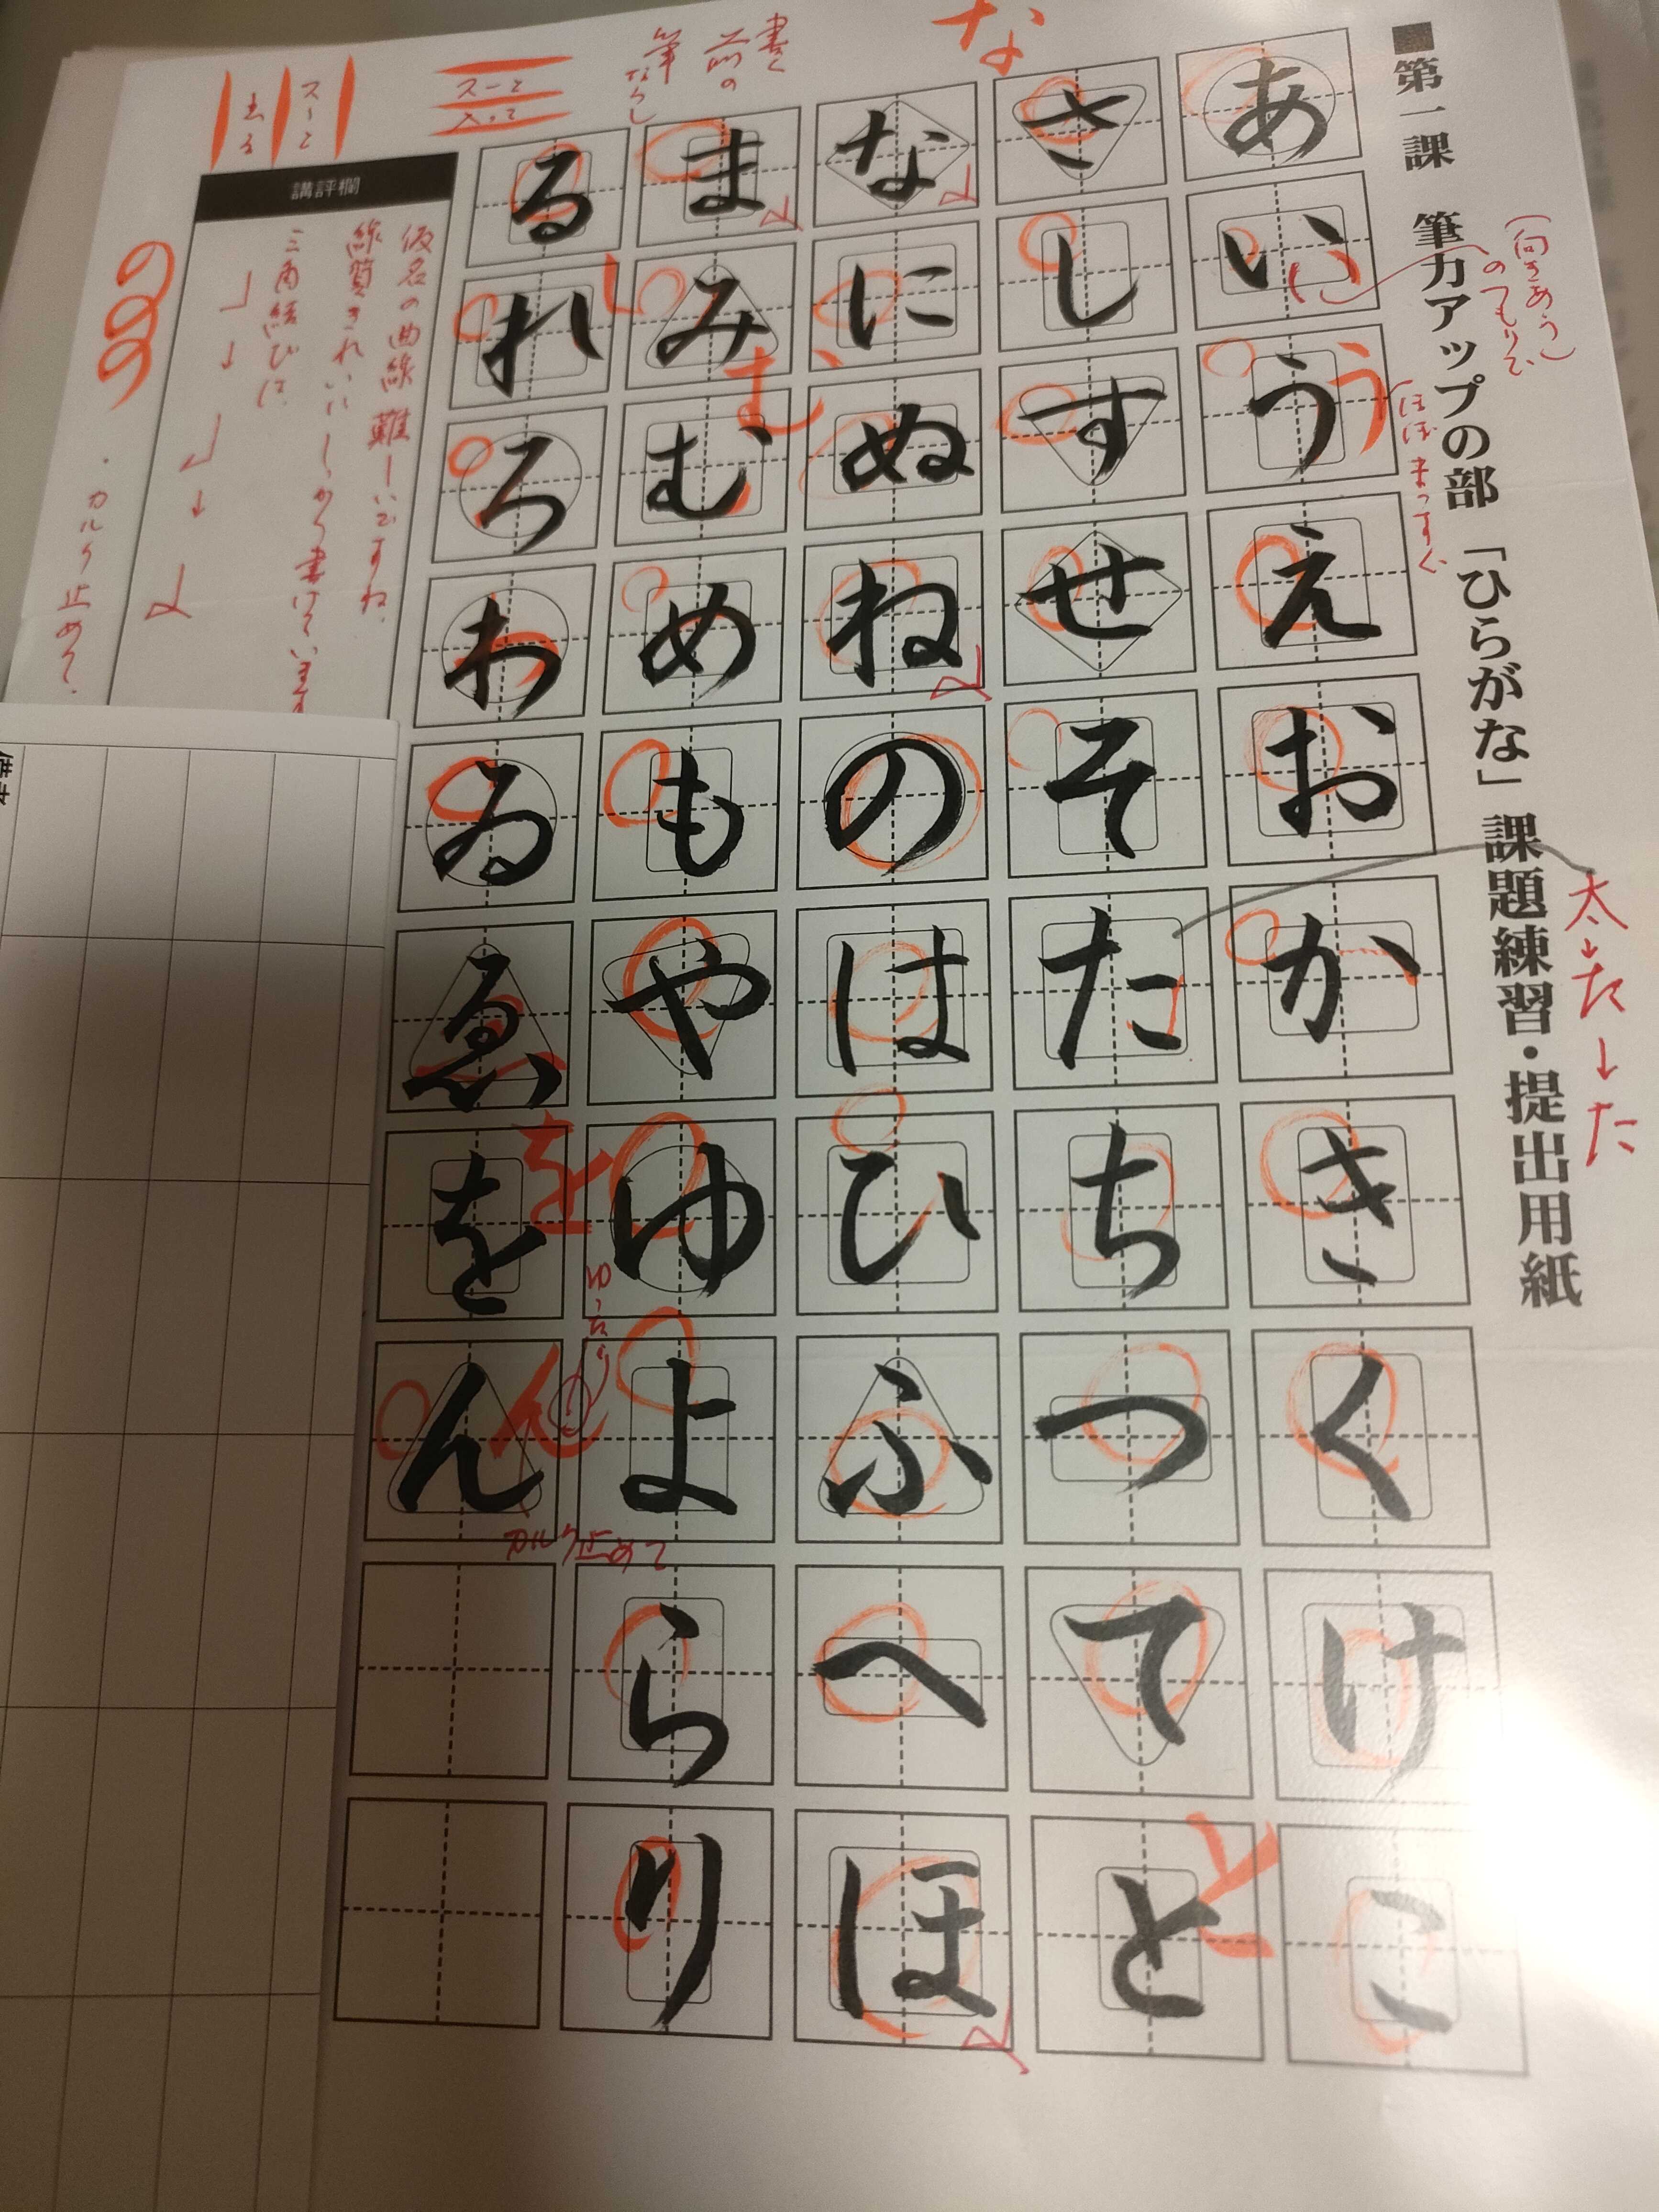 ■第一課 筆力アップの部 「ひらがな」 課題練習・提出用紙
(向きあう)
のつもりで
ほぼまっすぐ
太→た→た
な
あいうえおかきくけこ
さしすせそたちつてと
と
なにぬねのはひふへほ
書く
前の
筆ならし
まみむめもやゆよらり
む
るれろわゐゑをん
を
ん
ゆったり
カルク止めて
スーと
入って
スーと
出る
講評欄
仮名の曲線難しいですね、
線質きれいにしっかり書けています
三角結びは、
カルク止めて、
ののの
備考